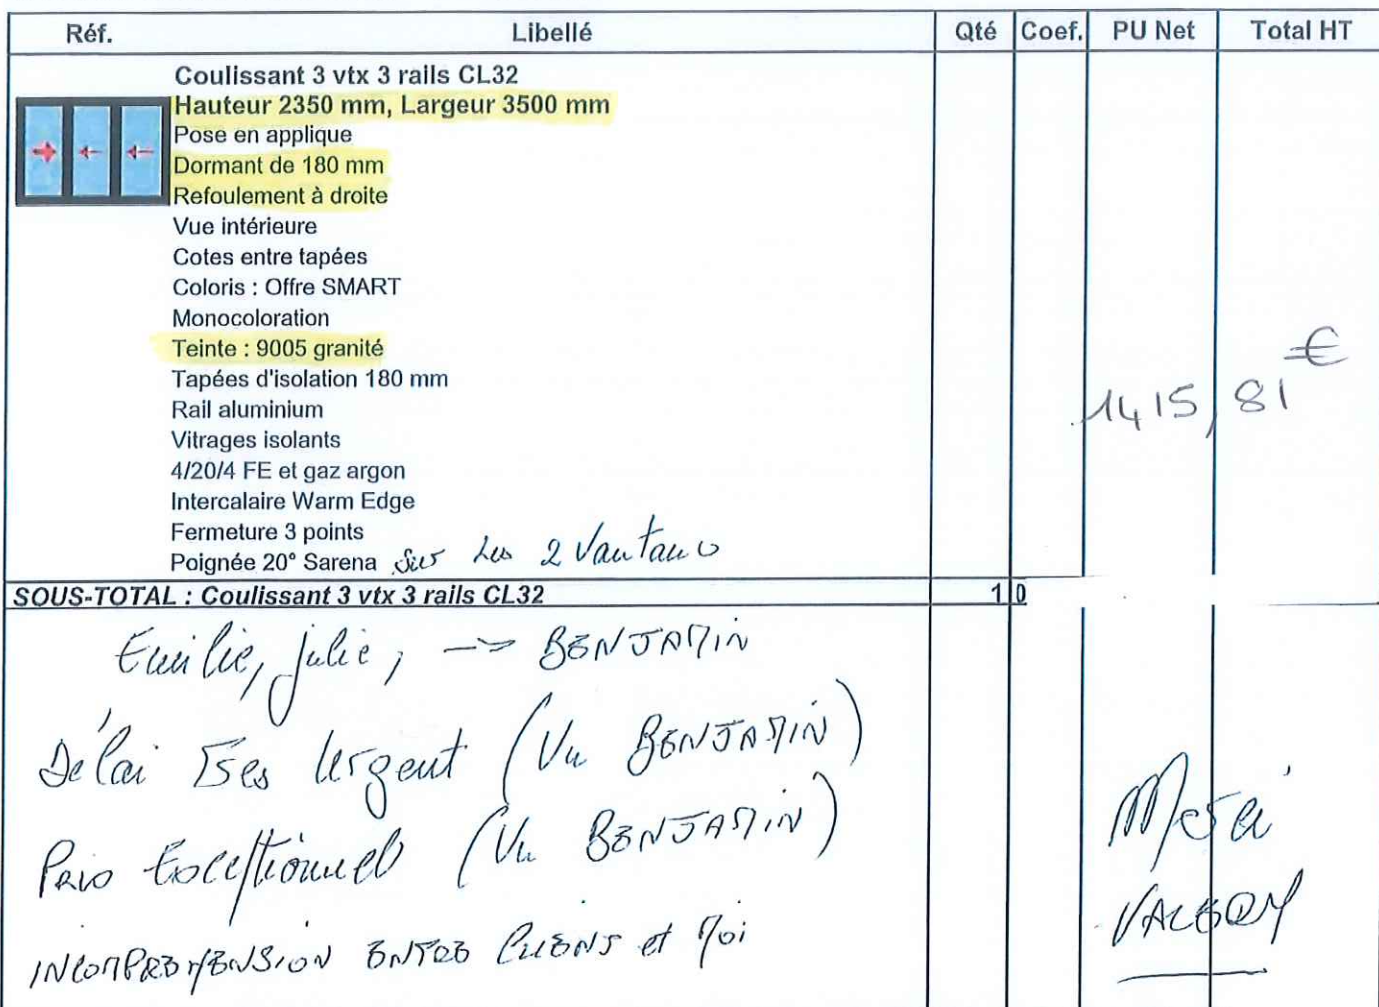 Réf. Libellé Qté Coef. PU Net Total HT
Coulissant 3 vtx 3 rails CL32
Hauteur 2350 mm, Largeur 3500 mm
Pose en applique
Dormant de 180 mm
Refoulement à droite
Vue intérieure
Cotes entre tapées
Coloris : Offre SMART
Monocoloration
Teinte : 9005 granité
Tapées d'isolation 180 mm
Rail aluminium
Vitrages isolants
4/20/4 FE et gaz argon
Intercalaire Warm Edge
Fermeture 3 points
Poignée 20° Sarena sur les 2 Vantaux
1415,81 €
SOUS-TOTAL : Coulissant 3 vtx 3 rails CL32 1 0
Emilie, julie, -> BENJAMIN
Délai Très Urgent (Vu BENJAMIN)
Prix Exceptionnel (Vu BENJAMIN)
INCOMPREHENSION ENTRE CLIENT et Moi
Merci
VALERY